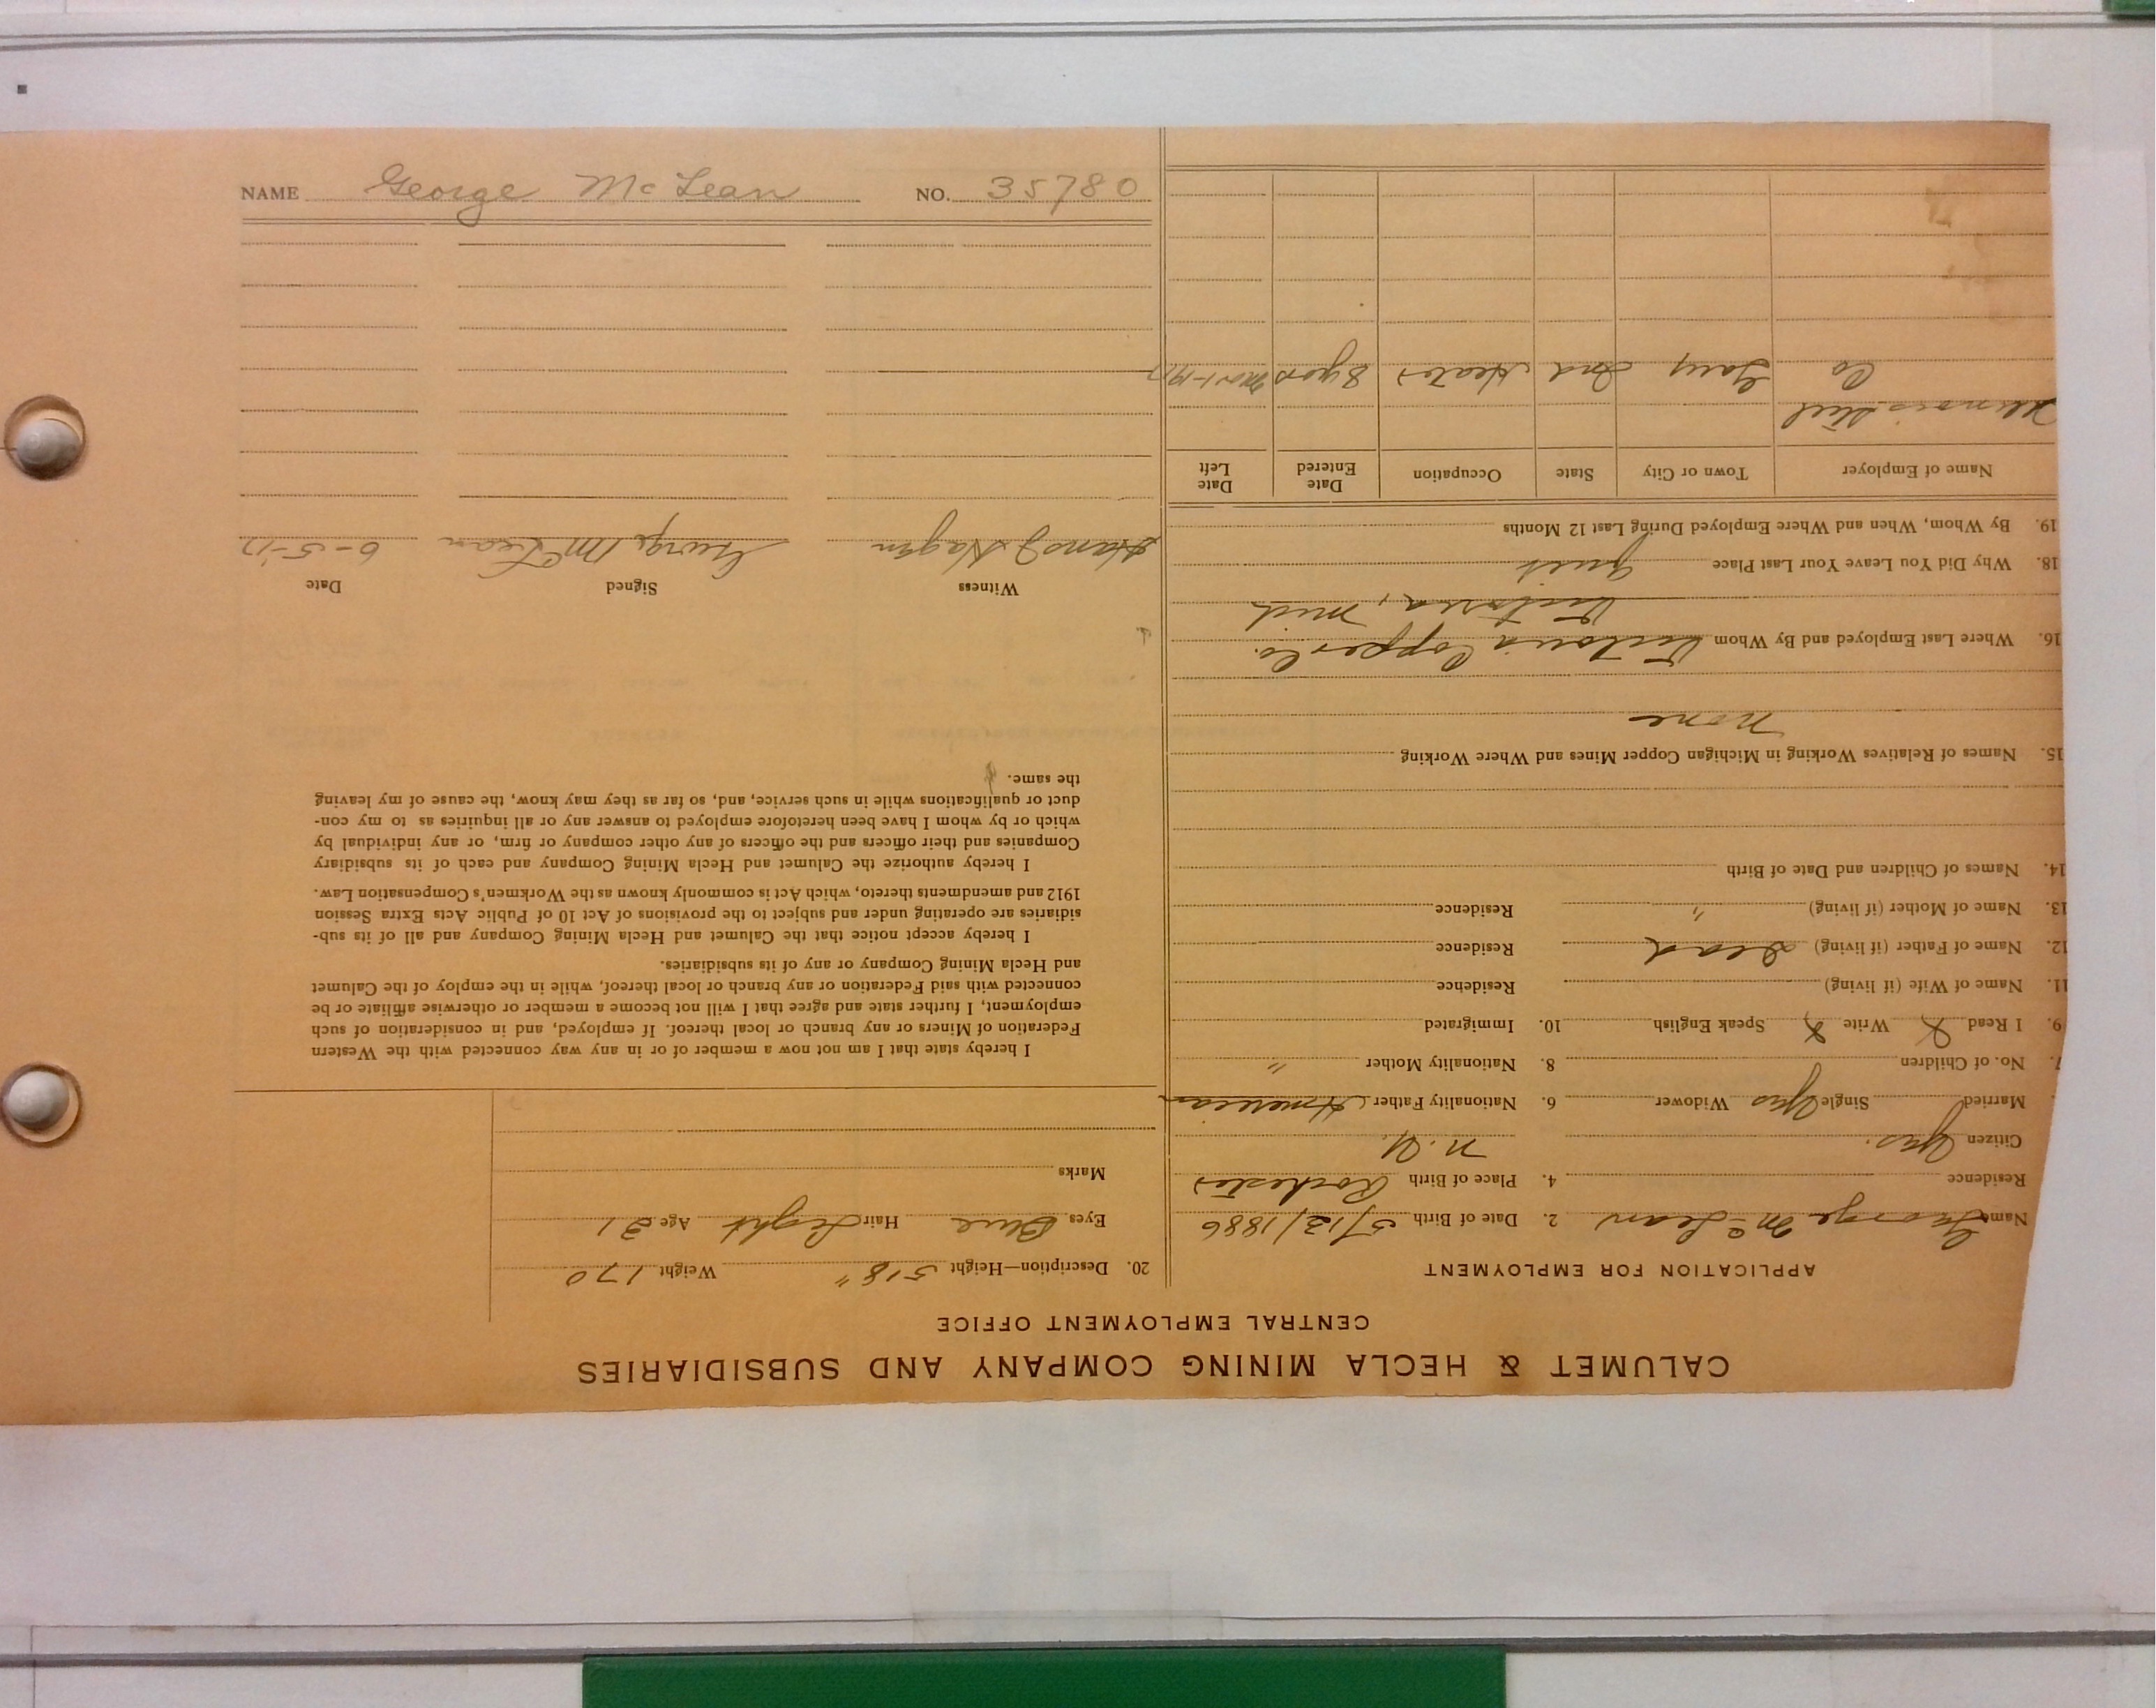 NAME George McLean NO. 35780
CALUMET & HECLA MINING COMPANY AND SUBSIDIARIES
CENTRAL EMPLOYMENT OFFICE
APPLICATION FOR EMPLOYMENT
Name George McLean 2. Date of Birth 5/12/1886
Residence 4. Place of Birth Rochester
Citizen Yes. N.Y.
Married Single Yes Widower 6. Nationality Father American
7. No. of Children 8. Nationality Mother "
9. I Read X Write X Speak English 10. Immigrated
11. Name of Wife (if living) Residence
12. Name of Father (if living) Dead Residence
13. Name of Mother (if living) " Residence
14. Names of Children and Date of Birth
15. Names of Relatives Working in Michigan Copper Mines and Where Working
None
16. Where Last Employed and By Whom Victoria Copper Co.
Victoria, Mich
18. Why Did You Leave Your Last Place Quit
19. By Whom, When and Where Employed During Last 12 Months
Name of Employer Town or City State Occupation Date Entered Date Left
Illinois Steel
Co Gary Ind Heater 8 yrs Mar 1-1917
20. Description—Height 5'8" Weight 170
Eyes Blue Hair Light Age 31
Marks
I hereby state that I am not now a member of or in any way connected with the Western
Federation of Miners or any branch or local thereof. If employed, and in consideration of such
employment, I further state and agree that I will not become a member or otherwise affiliate or be
connected with said Federation or any branch or local thereof, while in the employ of the Calumet
and Hecla Mining Company or any of its subsidiaries.
I hereby accept notice that the Calumet and Hecla Mining Company and all of its sub-
sidiaries are operating under and subject to the provisions of Act 10 of Public Acts Extra Session
1912 and amendments thereto, which Act is commonly known as the Workmen's Compensation Law.
I hereby authorize the Calumet and Hecla Mining Company and each of its subsidiary
Companies and their officers and the officers of any other company or firm, or any individual by
which or by whom I have been heretofore employed to answer any or all inquiries as to my con-
duct or qualifications while in such service, and, so far as they may know, the cause of my leaving
the same.
Witness Signed Date
Hans J Hagen George McLean 6-5-17